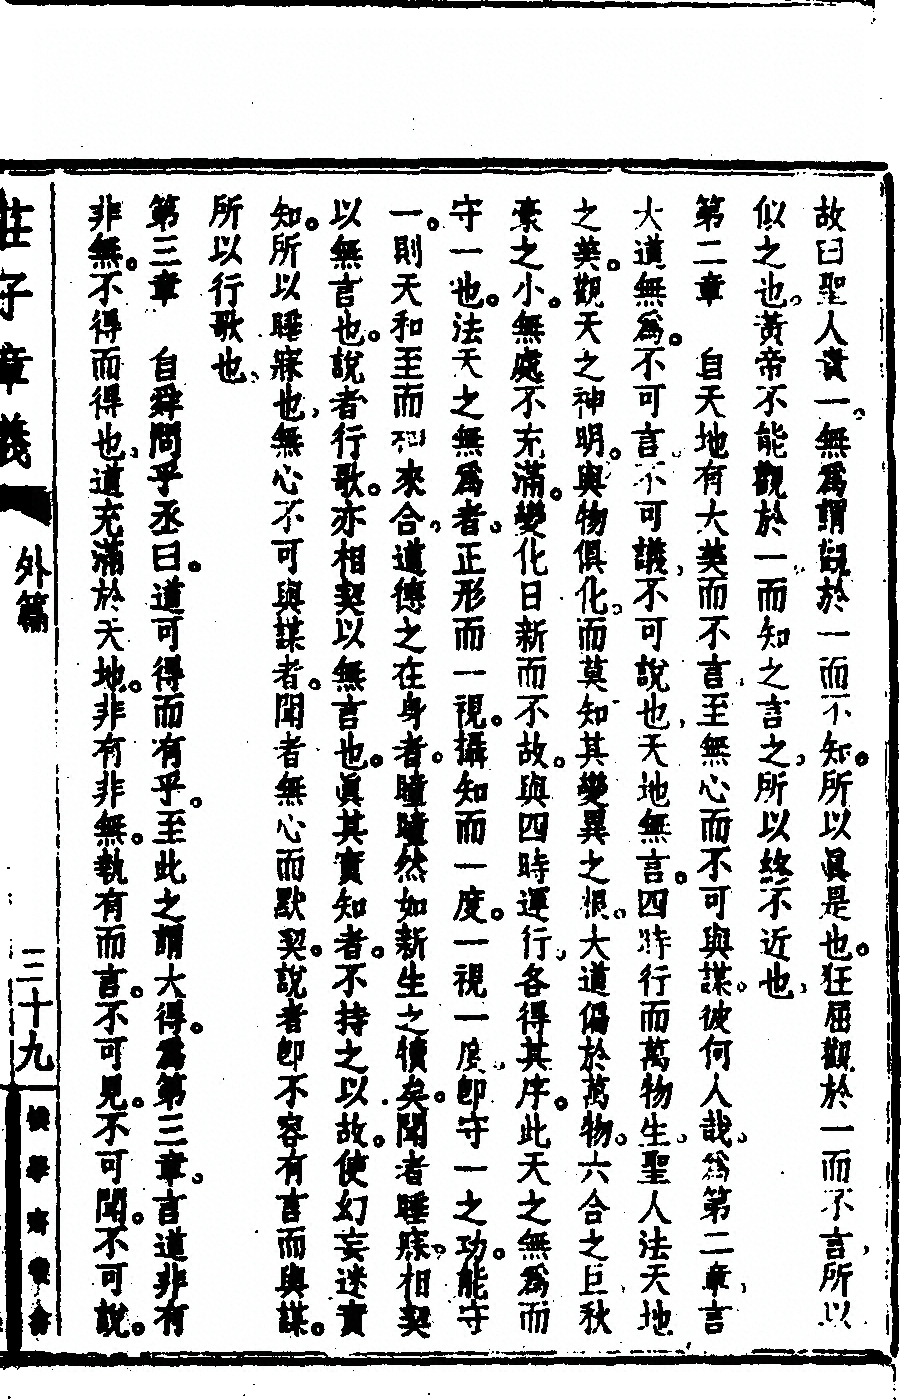 故曰聖人貴一。無爲謂觀於一而不知。所以眞是也。狂屈觀於一而不言。所以
似之也。黃帝不能觀於一而知之言之。所以終不近也。
第二章　自天地有大美而不言。至無心而不可與謀。彼何人哉。爲第二章。言
大道無爲。不可言。不可議。不可說也。天地無言。四時行而萬物生。聖人法天地
之美。觀天之神明。與物俱化。而莫知其變異之根。大道徧於萬物。六合之巨。秋
豪之小。無處不充滿。變化日新而不故。與四時運行。各得其序。此天之無爲而
守一也。法天之無爲者。正形而一視。攝知而一度。一視一度。卽守一之功。能守
一。則天和至而和來合。道德之在身者。瞳瞳然如新生之犢矣。聞者睡寐。相契
以無言也。說者行歌。亦相契以無言也。眞其實知者。不持之以故。使幻妄迷實
知。所以睡寐也。無心不可與謀者。聞者無心而默契。說者卽不容有言而與謀。
所以行歌也。
第三章　自舜問乎丞曰。道可得而有乎。至此之謂大得。爲第三章。言道非有
非無。不得而得也。道充滿於天地。非有非無。執有而言。不可見。不可聞。不可說。
莊子章義
外篇
三十九
學齋叢書